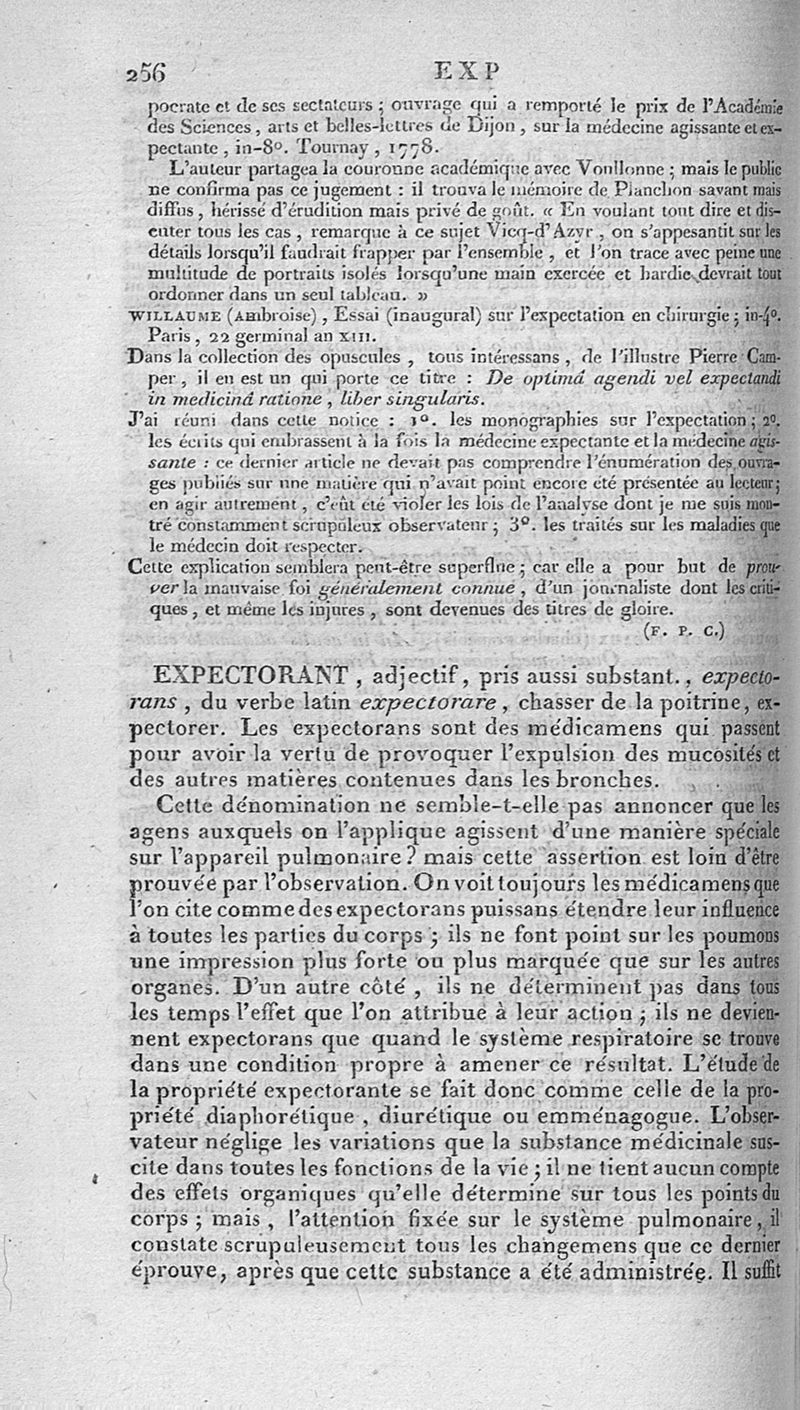 256 EXP
pocrate et de ses sectateurs ; ouvrage qui a remporté le prix de l'Académie
des Sciences, arts et belles-lettres de Dijon, sur la médecine agissante et ex-
pectante, in-8º. Tournay, 1778.
L'auteur partagea la couronne académique avec Voullonne ; mais le public
ne confirma pas ce jugement : il trouva le mémoire de Planchon savant mais
diffus, hérissé d'érudition mais privé de goût. « En voulant tout dire et dis-
cuter tous les cas, remarque à ce sujet Vicq-d'Azyr, on s'appesantit sur les
détails lorsqu'il faudrait frapper par l'ensemble, et l'on trace avec peine une
multitude de portraits isolés lorsqu'une main exercée et hardie devrait tout
ordonner dans un seul tableau. »
WILLAUME (Ambroise), Essai (inaugural) sur l'expectation en chirurgie ; in-4º.
Paris, 22 germinal an XIII.
Dans la collection des opuscules, tous intéressans, de l'illustre Pierre Cam-
per, il en est un qui porte ce titre : De optimâ agendi vel expectandi
in medicinâ ratione, liber singularis.
J'ai réuni dans cette notice : 1º. les monographies sur l'expectation ; 2º.
les écrits qui embrassent à la fois la médecine expectante et la médecine agis-
sante : ce dernier article ne devait pas comprendre l'énumération des ouvra-
ges publiés sur une matière qui n'avait point encore été présentée au lecteur ;
en agir autrement, c'eût été violer les lois de l'analyse dont je me suis mon-
tré constamment scrupuleux observateur ; 3º. les traités sur les maladies que
le médecin doit respecter.
Cette explication semblera peut-être superflue ; car elle a pour but de prou-
ver la mauvaise foi généralement connue, d'un journaliste dont les criti-
ques, et même les injures, sont devenues des titres de gloire.
(F. P. C.)
EXPECTORANT, adjectif, pris aussi substant., expecto-
rans, du verbe latin expectorare, chasser de la poitrine, ex-
pectorer. Les expectorans sont des médicamens qui passent
pour avoir la vertu de provoquer l'expulsion des mucosités et
des autres matières contenues dans les bronches.
Cette dénomination ne semble-t-elle pas annoncer que les
agens auxquels on l'applique agissent d'une manière spéciale
sur l'appareil pulmonaire ? mais cette assertion est loin d'être
prouvée par l'observation. On voit toujours les médicamens que
l'on cite comme des expectorans puissans étendre leur influence
à toutes les parties du corps ; ils ne font point sur les poumons
une impression plus forte ou plus marquée que sur les autres
organes. D'un autre côté, ils ne déterminent pas dans tous
les temps l'effet que l'on attribue à leur action ; ils ne devien-
nent expectorans que quand le système respiratoire se trouve
dans une condition propre à amener ce résultat. L'étude de
la propriété expectorante se fait donc comme celle de la pro-
priété diaphorétique, diurétique ou emménagogue. L'obser-
vateur néglige les variations que la substance médicinale sus-
cite dans toutes les fonctions de la vie ; il ne tient aucun compte
des effets organiques qu'elle détermine sur tous les points du
corps ; mais, l'attention fixée sur le système pulmonaire, il
constate scrupuleusement tous les changemens que ce dernier
éprouve, après que cette substance a été administrée. Il suffit